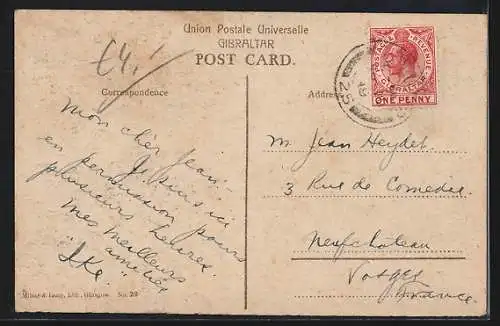 Union Postale Universelle
GIBRALTAR
POST CARD.
£4.
Correspondence
Address
POSTAGE & REVENUE
GIBRALTAR
ONE PENNY
25
Mon cher Jean –
Je suis ici
en permission pour
plusieurs heures.
Mes meilleurs
amitiés
"Ike"
M. Jean Heydel
3 Rue de Comedie
Neufchateau
Vosges
France
Millar & Lang, Ltd., Glasgow No. 29